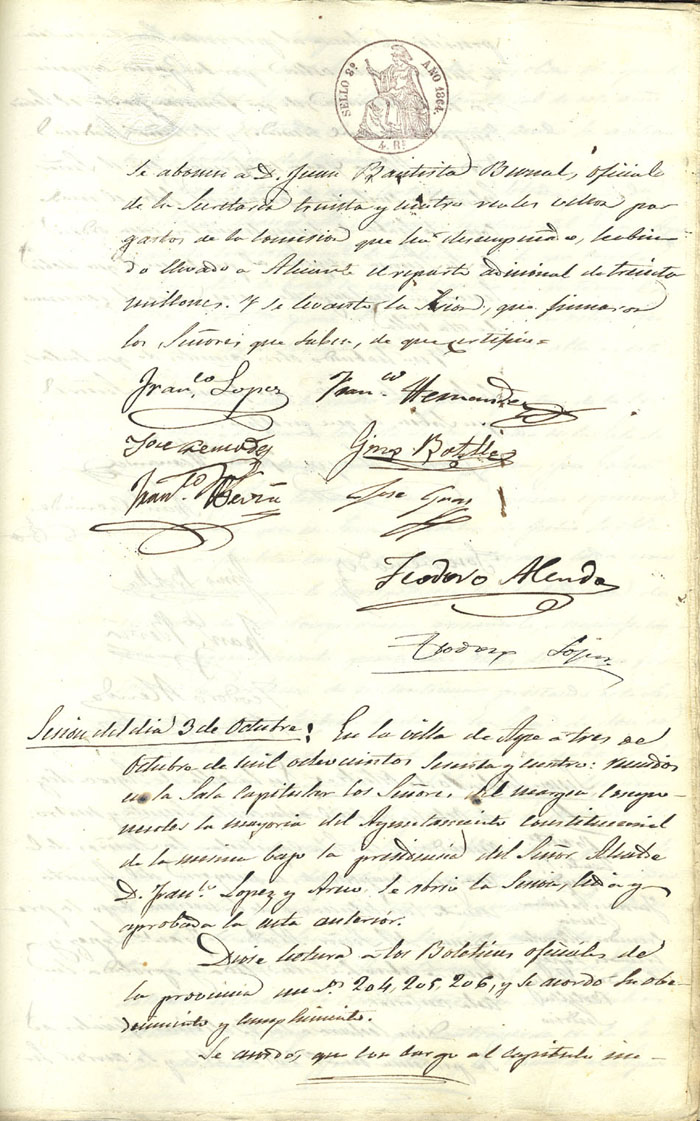 SELLO 8º AÑO 1864.
4. Rs
Se abonen a D. Juan Bautista Bernal, oficial
de la Secretaria treinta y cuatro reales vellon por
gastos de la comision que ha desempeñado, habien-
do llevado a Alicante el reparto adicional de treinta
millones. Y se levantó la Sesion, que firmaron
los Señores que saben, de que certifico=
Fran.co Lopez Fran.co Hernandez
Jose Remodes Gines Botella
Fran.co Jose
Teodoro Alenda
Lopez
Sesion del dia 3 de Octubre! En la villa de Aspe a tres de
Octubre de mil ochocientos sesenta y cuatro: reunidos
en la Sala Capitular los Señores del margen compo-
nentes la mayoria del Ayuntamiento constitucional
de la misma bajo la presidencia del Señor Alcalde
D. Fran.co Lopez y se abrio la Sesion, leida y
aprobada la acta anterior.
Diose lectura a los Boletines oficiales de
la provincia nu.os 204, 205, 206, y se acordó su obe-
decimiento y cumplimiento.
Se acordó, que con cargo al capitulo im-